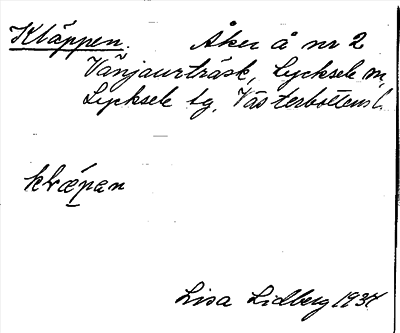 Kläppen. Åker å nr 2
Vänjaurträsk, Lycksele m,
Lycksele tg. Västerbottens l.
klæpan
Lisa Lidberg 1937